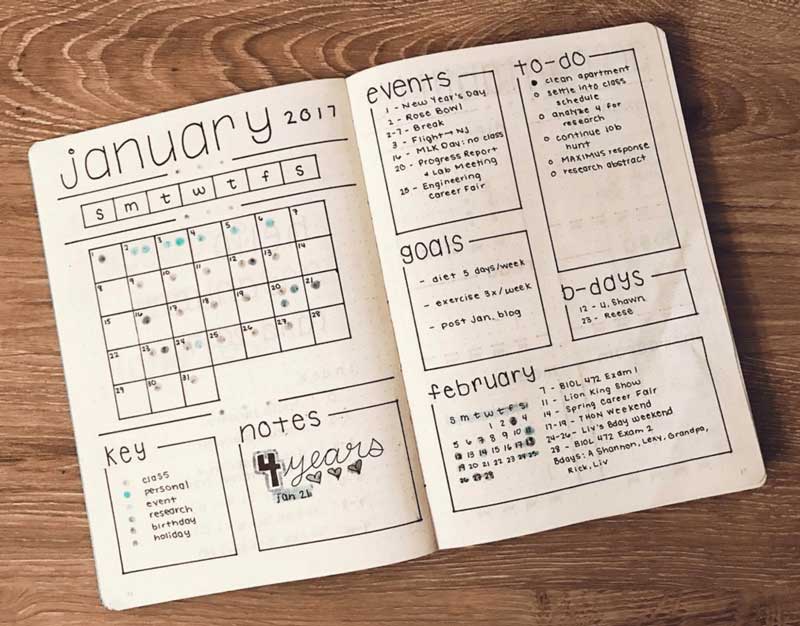 january 2017
s m t w t f s
1 2 3 4 5 6 7
8 9 10 11 12 13 14
15 16 17 18 19 20 21
22 23 24 25 26 27 28
29 30 31
key
class
personal
event
research
birthday
holiday
notes
4 years
jan 21
events
1 - New Year's Day
2 - Rose Bowl
2-7 - Break
3 - Flight → NJ
16 - MLK Day: no class
20 - Progress Report
& Lab Meeting
25 - Engineering
career Fair
goals
- diet 5 days/week
- exercise 3x/week
- post Jan. blog
to-do
clean apartment
settle into class
schedule
analyze 4 for
research
continue job
hunt
MAXIMUS response
research abstract
b-days
12 - U. Shawn
23 - Reese
february
S m t w t f s
1 2 3 4
5 6 7 8 9 10 11
12 13 14 15 16 17 18
19 20 21 22 23 24 25
26 27 28
7 - BIOL 472 Exam 1
11 - Lion King Show
14 - Spring Career Fair
17-19 - THON Weekend
24-26 - Liv's Bday Weekend
28 - BIOL 472 Exam 2
Bdays: A Shannon, Lexy, Grandpa,
Rick, Liv